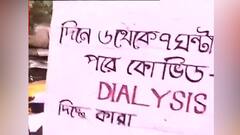 দিনে ৬থেকে৭ঘন্টা
পরে কোভিড-
DIALYSIS
দিচ্ছে কারা